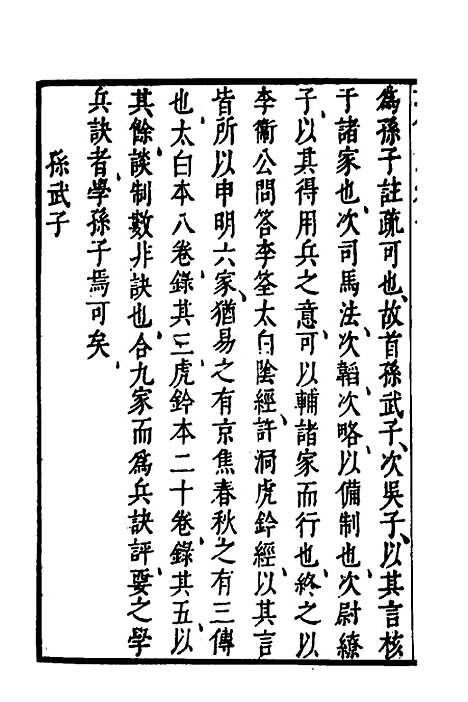 為孫子註疏可也故首孫武子次吳子以其言核
于諸家也次司馬法次韜次略以備制也次尉繚
子以其得用兵之意可以輔諸家而行也終之以
李衛公問答李筌太白陰經許洞虎鈐經以其言
皆所以申明六家猶易之有京焦春秋之有三傳
也太白本八卷錄其三虎鈐本二十卷錄其五以
其餘談制數非訣也合九家而為兵訣評要之學
兵訣者學孫子焉可矣
孫武子